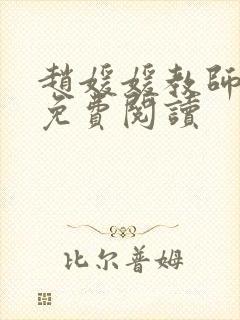 趙媛媛教師
免費閱讀
比尔普姆